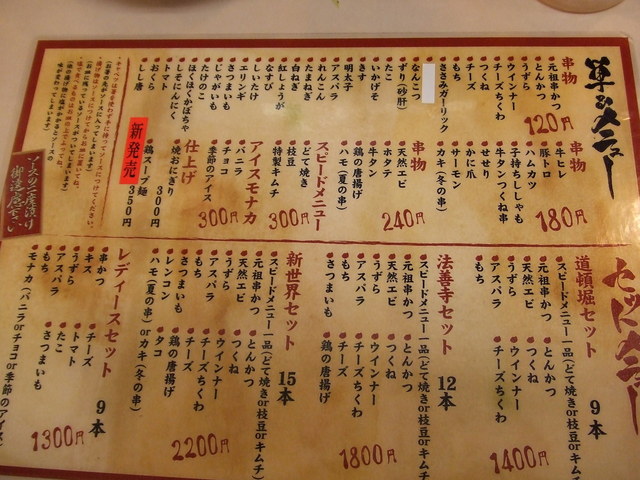 単品メニュー
串物
120円
元祖串かつ
とんかつ
うずら
ウインナー
チーズちくわ
つくね
チーズ
もち
ささみガーリック
なんこつ
ずり(砂肝)
いかげそ
きす
明太子
アスパラ
れんこん
たまねぎ
白ねぎ
紅しょうが
なすび
しいたけ
エリンギ
さつまいも
じゃがいも
たけのこ
ほくほくかぼちゃ
しそにんにく
トマト
おくら
しし唐
串物
180円
牛ヒレ
豚トロ
ハムカツ
子持ちししゃも
牛タンつくね串
せせり
かに爪
サーモン
カキ(冬の串)
串物
240円
天然エビ
ホタテ
牛タン
鶏の唐揚げ
ハモ(夏の串)
スピードメニュー
300円
どて焼き
枝豆
特製キムチ
アイスモナカ
300円
バニラ
チョコ
季節のアイス
仕上げ
焼おにぎり 300円
鶏スープ麺 350円
新発売
ソースの二度漬け
御遠慮下さい
セットメニュー
道頓堀セット 9本
スピードメニュー一品(どて焼きor枝豆orキムチ)
元祖串かつ
天然エビ
うずら
アスパラ
もち
とんかつ
つくね
ウインナー
チーズちくわ
1400円
法善寺セット 12本
スピードメニュー一品(どて焼きor枝豆orキムチ)
元祖串かつ
天然エビ
うずら
アスパラ
もち
さつまいも
とんかつ
つくね
ウインナー
チーズちくわ
チーズ
鶏の唐揚げ
1800円
新世界セット 15本
スピードメニュー一品(どて焼きor枝豆orキムチ)
元祖串かつ
天然エビ
うずら
アスパラ
もち
さつまいも
レンコン
ハモ(夏の串)orカキ(冬の串)
とんかつ
つくね
ウインナー
チーズちくわ
チーズ
鶏の唐揚げ
タコ
2200円
レディースセット 9本
串かつ
キス
うずら
アスパラ
もち
モナカ(バニラorチョコor季節のアイス)
チーズ
トマト
たこ
さつまいも
1300円